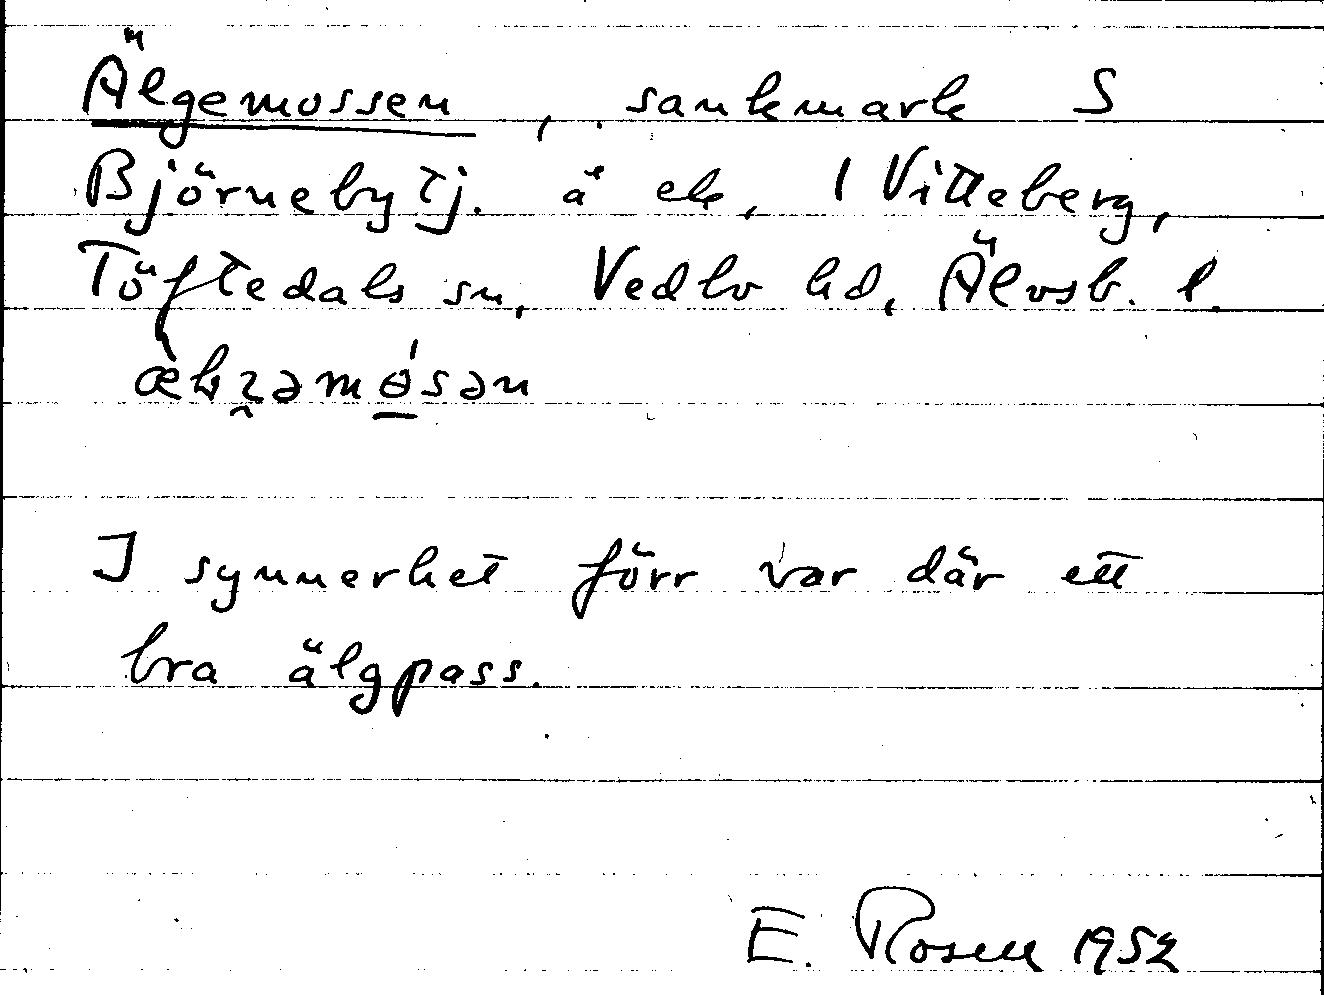 Älgemossen, sankmark S
Björnebytj. å ek, 1 Vitteberg,
Töftedals sn, Vedbo hd, Älvsb. l.
I synnerhet förr var där ett
bra älgpass.
E. Rosell 1952